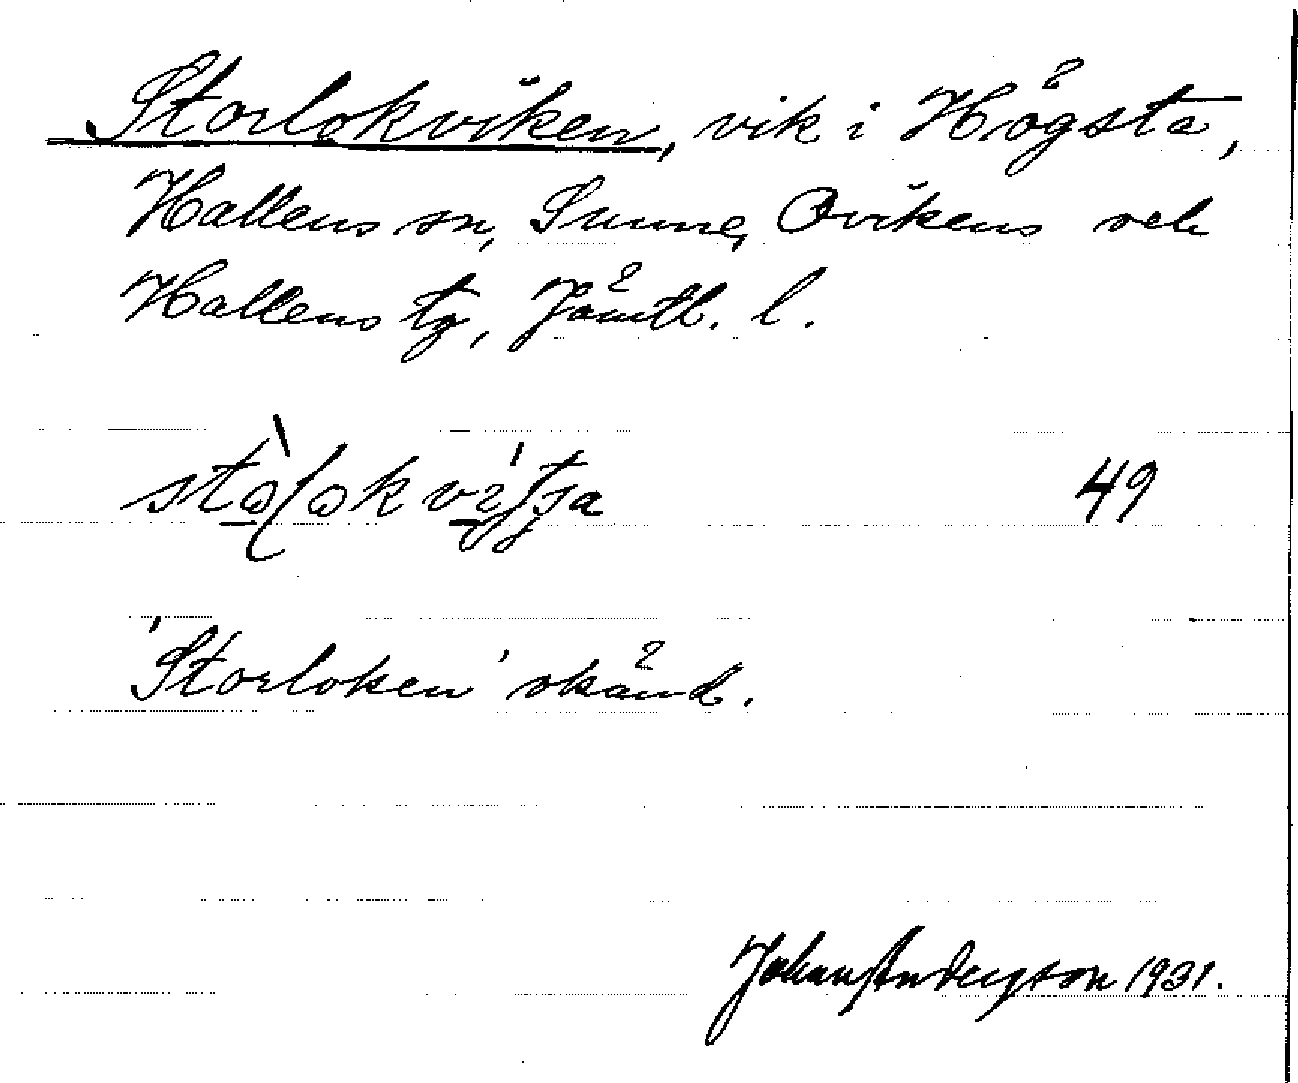 Storlokviken, vik i Högsta,
Hallens sn, Sunne, Ovikens och
Hallens tg, Jämtl. l.
49
'Storloken' okänd.
Johan Anderzson 1931.